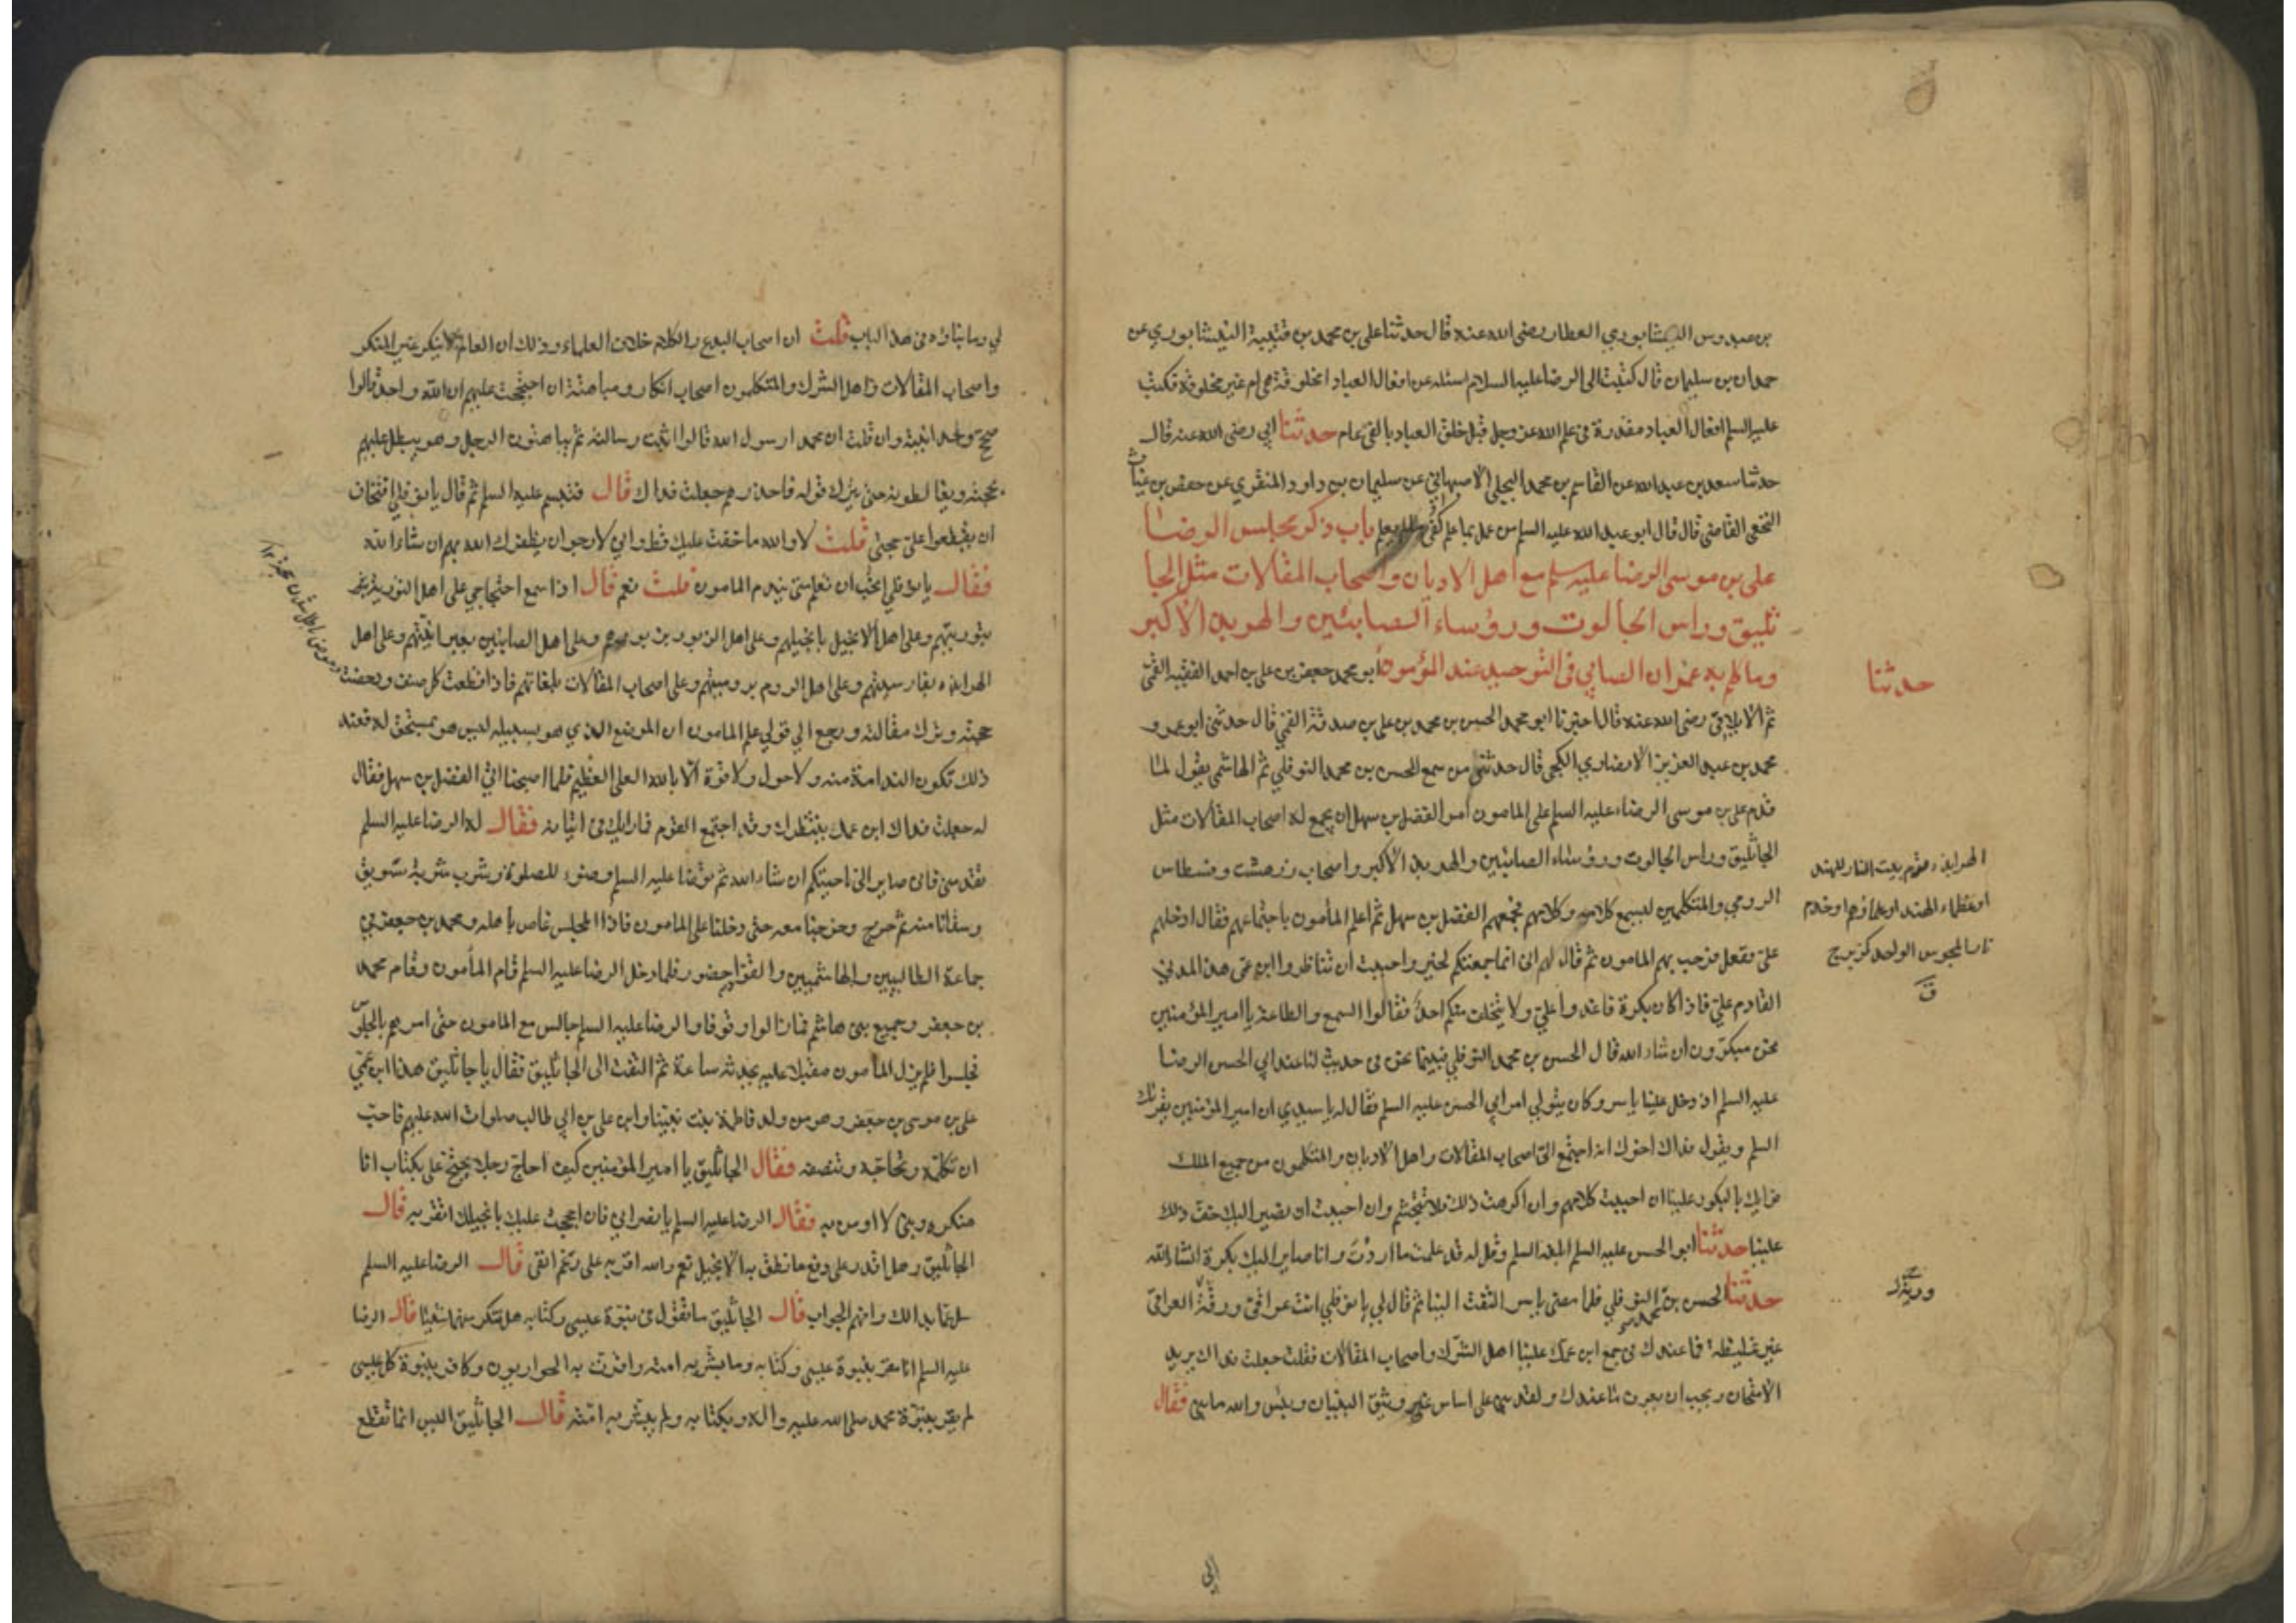 بن عبدوس النيشابوري العطار رضى الله عنه قال حدثنا على بن محمد بن قتيبة النيشابوري عن
حمدان بن سليمان قال كتبت الى الرضا عليه السلام اسئله عن افعال العباد امخلوقة هى ام غير مخلوقة فكتب
عليه السلم افعال العباد مقدرة فى علم الله عز وجل قبل خلق العباد بالفى عام حدثنا ابي رضى الله عنه قال
حدثنا سعد بن عبد الله عن القاسم بن محمد البجلي الاصبهاني عن سليمان بن داود المنقري عن حفص بن غياث
النخعى القاضى قال قال ابو عبد الله عليه السلم من عمل بما علم كفى ما لم يعلم باب ذكر مجلس الرضا
على بن موسى الرضا عليه سلم مع اهل الاديان واصحاب المقالات مثل الجا
ثليق وراس الجالوت ورؤساء الصابئين والهربد الاكبر
وما كلم به عمران الصابي فى التوحيد عند المؤمون ابو محمد جعفر بن على بن احمد الفقيه القمى
حدثنا
ثم الايلاقى رضى الله عنه قال اخبرنا ابو محمد الحسن بن محمد بن على بن صدقة القمي قال حدثنى ابو عمرو
محمد بن عبد العزيز الانصاري الكجى قال حدثنى من سمع الحسن بن محمد النوفلي ثم الهاشمى يقول لما
قدم على بن موسى الرضا عليه السلم على المامون امر الفضل بن سهل ان يجمع له اصحاب المقالات مثل
الجاثليق وراس الجالوت ورؤساء الصابئين والهربد الاكبر واصحاب زرهشت ونسطاس
الرومي والمتكلمين ليسمع كلامه وكلامهم فجمعهم الفضل بن سهل ثم اعلم المأمون باجتماعهم فقال ادخلهم
على ففعل فرحب بهم المامون ثم قال لهم انى انما جمعتكم لخير واحببت ان تناظروا ابن عمى هذا المدنى
القادم على فاذا كان بكرة فاغدوا علي ولا يتخلف منكم احد فقالوا السمع والطاعة يا امير المؤمنين
نحن مبكرون ان شاء الله قال الحسن بن محمد النوفلي فبينما نحن فى حديث لنا عند ابي الحسن الرضا
عليه السلم اذ دخل علينا ياسر وكان يتولي امر ابي الحسن عليه السلم فقال له يا سيدي ان امير المؤمنين يقرئك
السلم ويقول فداك اخوك انه اجتمع الى اصحاب المقالات واهل الاديان والمتكلمون من جميع الملك
فرايك بالبكور علينا ان احببت كلامهم وان اكرهت ذلك فلا تتجشم وان احببت ان نصير اليك خف ذلك
علينا حدثنا ابو الحسن عليه السلم ابلغه السلم وقل له قد علمت ما اردت وانا صاير اليك بكرة انشاء الله
حدثنا الحسن بن محمد النوفلي فلما مضى ياسر التفت الينا ثم قال لي يا نوفلي انت عراقى ورقة العراقى
غير غليظة فما عندك فى جمع ابن عمك علينا اهل الشرك واصحاب المقالات فقلت جعلت فداك يريد
الامتحان ويحب ان يعرف ما عندك ولقد بنى على اساس غير وثيق البنيان وبئس والله ما بنى فقال
الهرابذة قوم بيت النار للهند
او عظماء الهند او علماؤهم او خدم
نار المجوس الواحد كزبرج
ق
لي وما بناؤه فى هذا الباب قلت ان اصحاب البدع والكلام خلاف العلماء وذلك ان العالم لا ينكر غير المنكر
واصحاب المقالات واهل الشرك والمتكلمون اصحاب انكار ومباهتة ان احتججت عليهم ان الله واحد قالوا
صحح وحدانيته وان قلت ان محمدا رسول الله قالوا اثبت رسالته ثم يباهتون الرجل وهو يبطل عليهم
بحجته ويغالطونه حتى يترك قوله فاحذرهم جعلت فداك قال فتبسم عليه السلم ثم قال يا نوفلي افتخاف
ان يقطعوا على حجتى قلت لا والله ما خفت عليك قط وانى لارجو ان يظفرك الله بهم ان شاء الله
فقال يا نوفلي اتحب ان تعلم متى يندم المامون قلت نعم قال اذا سمع احتجاجي على اهل التورية
بتوريتهم وعلى اهل الانجيل بانجيلهم وعلى اهل الزبور بزبورهم وعلى اهل الصابئين بعبرانيتهم وعلى اهل
الهرابذه بفارسيتهم وعلى اهل الروم بروميتهم وعلى اصحاب المقالات بلغاتهم فاذا قطعت كل صنف ودحضت
حجته وترك مقالته ورجع الى قولي علم المامون ان الموضع الذي هو بسبيله ليس هو بمستحق له فعند
ذلك تكون الندامة منه ولا حول ولا قوة الا بالله العلى العظيم فلما اصبحنا اتى الفضل بن سهل فقال
له جعلت فداك ابن عمك ينتظرك وقد اجتمع القوم فما رايك فى اتيانه فقال له الرضا عليه السلم
تقدمنى فانى صاير الى ناحيتكم ان شاء الله ثم توضا عليه السلم وضوء للصلوة وشرب شربة سويق
وسقانا منه ثم خرج وخرجنا معه حتى دخلنا على المامون فاذا المجلس غاص باهله ومحمد بن جعفر فى
جماعة الطالبيين والهاشميين والقواد حضور فلما دخل الرضا عليه السلم قام المأمون وقام محمد
بن جعفر وجميع بنى هاشم فما زالوا وقوفا والرضا عليه السلم جالس مع المامون حتى امرهم بالجلوس
فجلسوا فلم يزل المأمون مقبلا عليه يحدثه ساعة ثم التفت الى الجاثليق فقال يا جاثليق هذا ابن عمي
على بن موسى بن جعفر وهو من ولد فاطمة بنت نبينا وابن على بن ابي طالب صلوات الله عليهم فاحب
ان تكلمه وتحاجه وتنصفه فقال الجاثليق يا امير المؤمنين كيف احاج رجلا يحتج على بكتاب انا
منكره ونبى لا اومن به فقال الرضا عليه السلم يا نصراني فان احججت عليك بانجيلك اتقر به قال
الجاثليق وهل اقدر على دفع ما نطق به الانجيل نعم والله اقر به على رغم انفى قال الرضا عليه السلم
سل عما بدا لك وافهم الجواب قال الجاثليق ما تقول فى نبوة عيسى وكتابه هل تنكر منهما شيئا قال الرضا
عليه السلم انا مقر بنبوة عيسى وكتابه وما بشر به امته واقرت به الحواريون وكافر بنبوة كل عيسى
لم يقر بنبوة محمد صلى الله عليه واله وبكتابه ولم يبشر به امته قال الجاثليق اليس انما تقطع